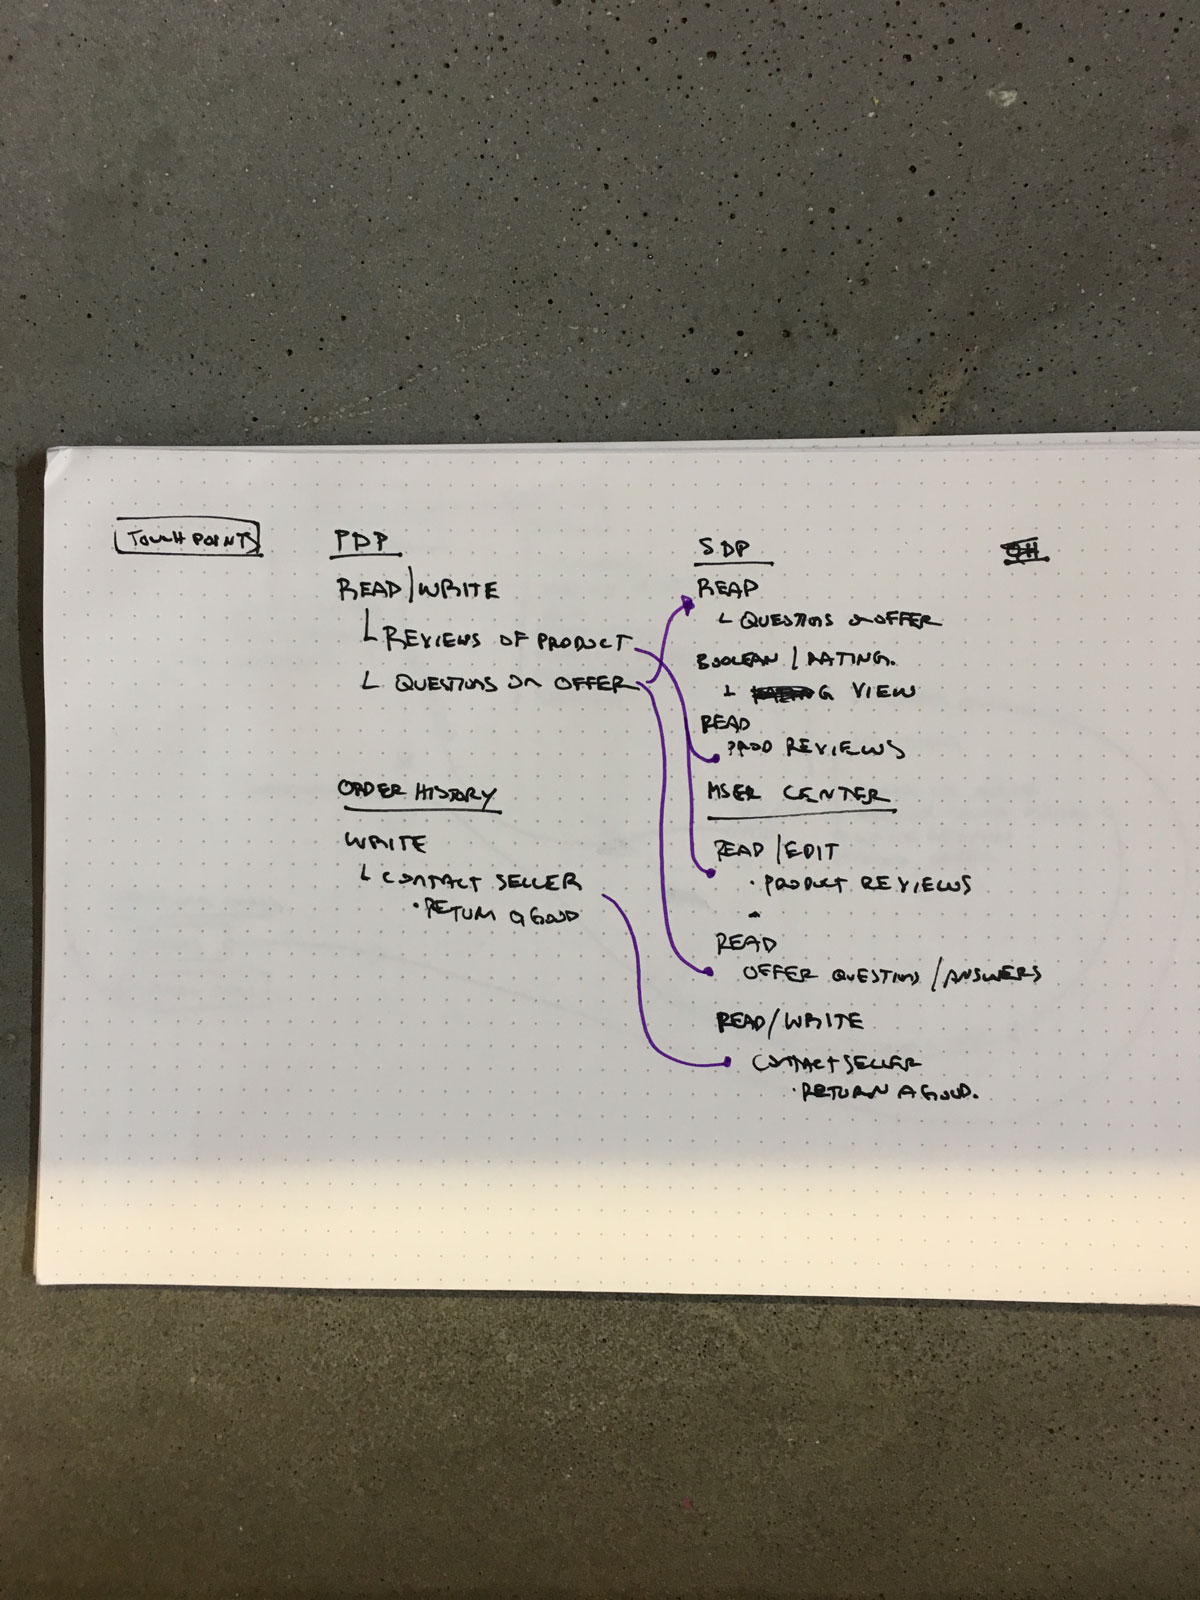 TOUCH POINTS
PDP
READ/WRITE
└ REVIEWS OF PRODUCT
└ QUESTIONS ON OFFER
ORDER HISTORY
WRITE
└ CONTACT SELLER
· RETURN A GOOD
SDP
READ
└ QUESTIONS ON OFFER
BOOLEAN / RATING.
└ VIEW
READ
PROD REVIEWS
USER CENTER
READ/EDIT
· PRODUCT REVIEWS
READ
OFFER QUESTIONS/ANSWERS
READ/WRITE
CONTACT SELLER
· RETURN A GOOD.